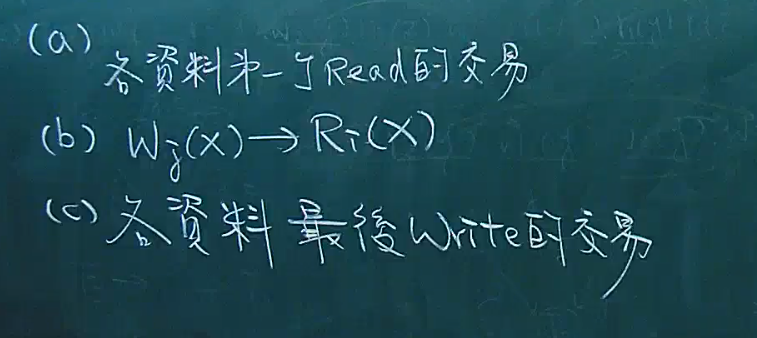 (a)
各資料第一个Read的交易
(b) Wj(X)→Ri(X)
(c) 各資料最後Write的交易